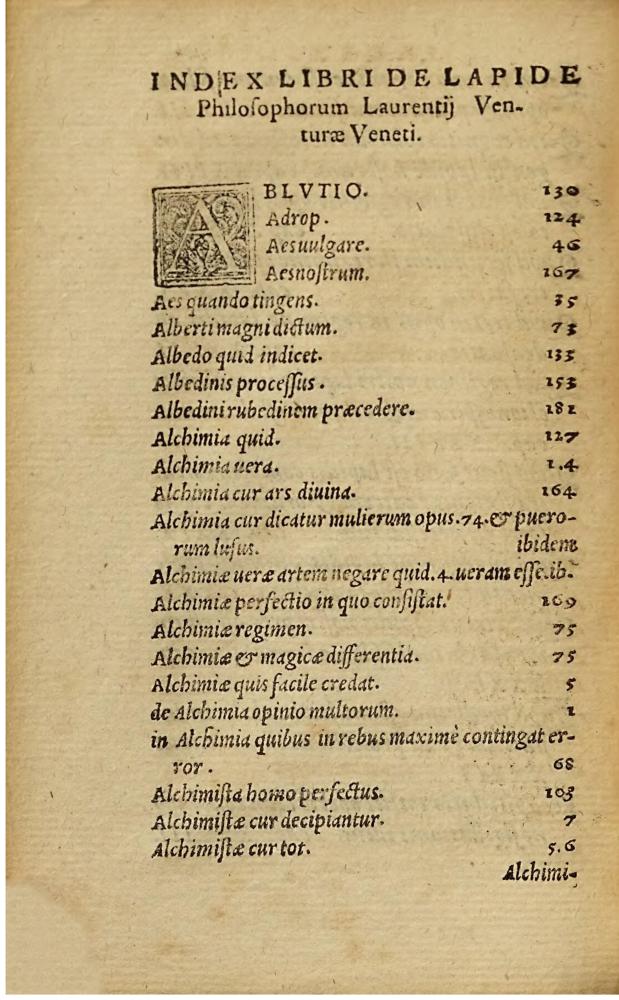 INDEX LIBRI DE LAPIDE
Philosophorum Laurentij Ven-
turæ Veneti.
ABLVTIO. 130
Adrop. 124
Aes uulgare. 46
Aes nostrum. 167
Aes quando tingens. 35
Alberti magni dictum. 73
Albedo quid indicet. 135
Albedinis processus. 153
Albedini rubedinem præcedere. 181
Alchimia quid. 127
Alchimia uera. 1.4
Alchimia cur ars diuina. 164
Alchimia cur dicatur mulierum opus. 74. & puero-
rum lusus. ibidem
Alchimiæ ueræ artem negare quid. 4. ueram esse. ib.
Alchimiæ perfectio in quo consistat. 169
Alchimiæ regimen. 75
Alchimiæ & magicæ differentia. 75
Alchimiæ quis facile credat. 5
de Alchimia opinio multorum. 1
in Alchimia quibus in rebus maximè contingat er-
ror. 68
Alchimista homo perfectus. 103
Alchimistæ cur decipiantur. 7
Alchimistæ cur tot. 5.6
Alchimi-